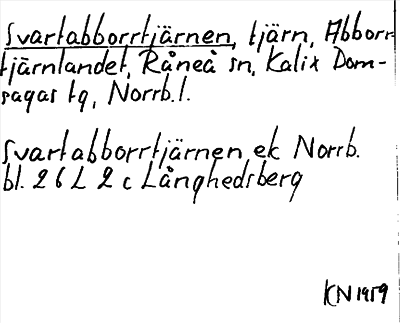 Svartabborrtjärnen, tjärn, Abborr
tjärnlandet, Råneå sn, Kalix Dom-
sagas tg, Norrb.l.
Svartabborrtjärnen ek Norrb.
bl. 26 L 2 c Långhedsberg
KN 1959